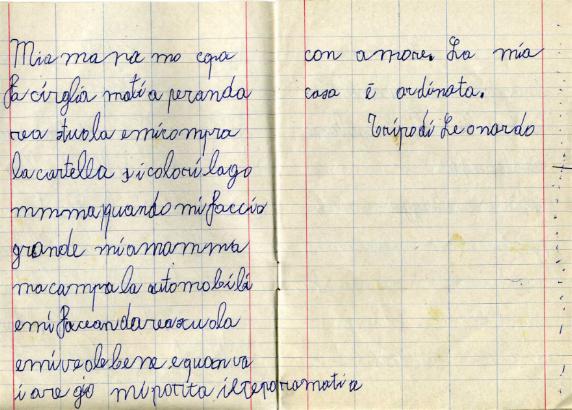 Mia ma na mo copa
fa cirglia mati a peranda
rea stuola emicompra
la cartella s i colori lago
mmmaquando mi faccio
grande miamamma
macampra la automobili
emi faceandarea scuola
emivole bene e quanva
i are gio mi porita il teporomatia
con amore. La mia
casa è ordinata.
Tripodi Leonardo